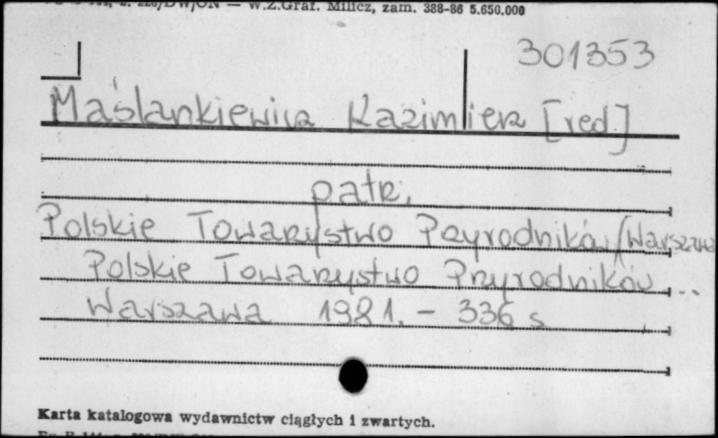 W.Z.Graf. Milicz, zam. 388-86 5.650.000
301353
Maślankiewicz Kazimierz [red.]
patrz.
Polskie Towarzystwo Przyrodników (Warszawa
Polskie Towarzystwo Przyrodników ...
Warszawa 1981. - 336 s
Karta katalogowa wydawnictw ciągłych i zwartych.